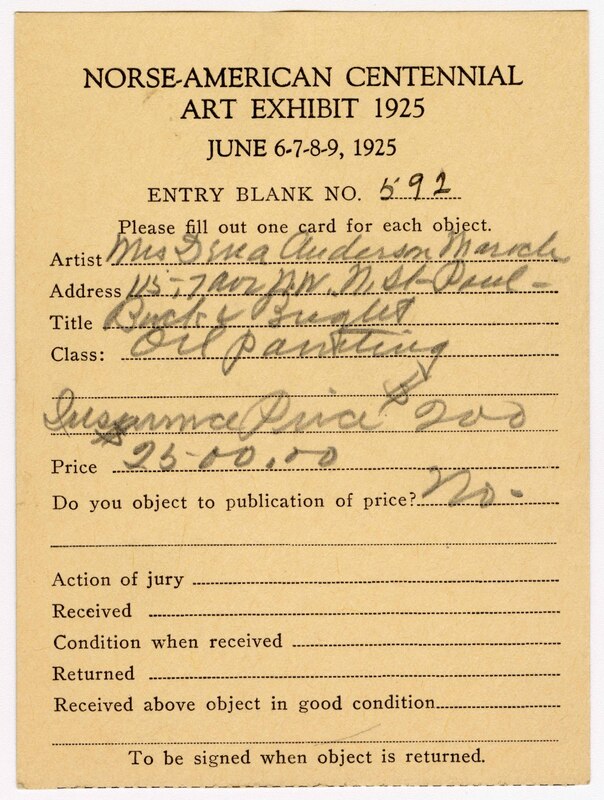 NORSE-AMERICAN CENTENNIAL
ART EXHIBIT 1925
JUNE 6-7-8-9, 1925
ENTRY BLANK NO. 592
Please fill out one card for each object.
Artist Mrs Anderson
Address 115-7 Ave N.W. N. St. Paul-
Title Buck & Bright
Class: Oil painting
Insurance Price $200
Price $2500.00
Do you object to publication of price? No-
Action of jury
Received
Condition when received
Returned
Received above object in good condition
To be signed when object is returned.